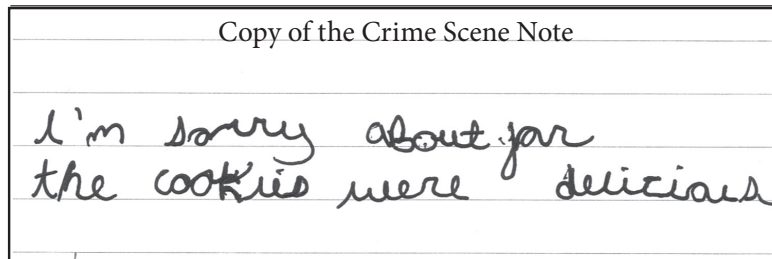 Copy of the Crime Scene Note
I'm sorry about jar
the cookies were delicious